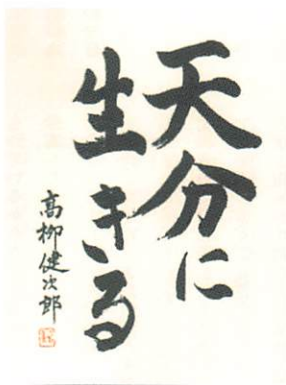 天分に
生きる
高柳健次郎